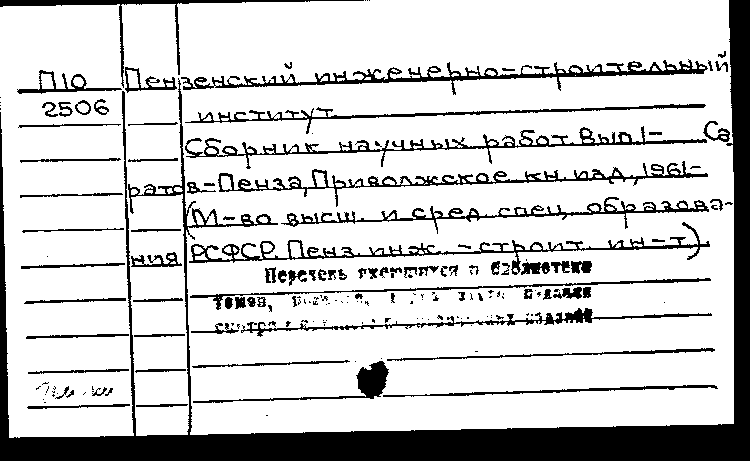 П10 Пензенский инженерно-строительный
2506 институт.
Сборник научных работ. Вып. 1- Са
ратов-Пенза, Приволжское кн. изд., 1961-
(М-во высш. и сред. спец. образова-
ния РСФСР. Пенз. инж.-строит. ин-т).
Перечень имеющихся в библиотеке
томов,
изданий